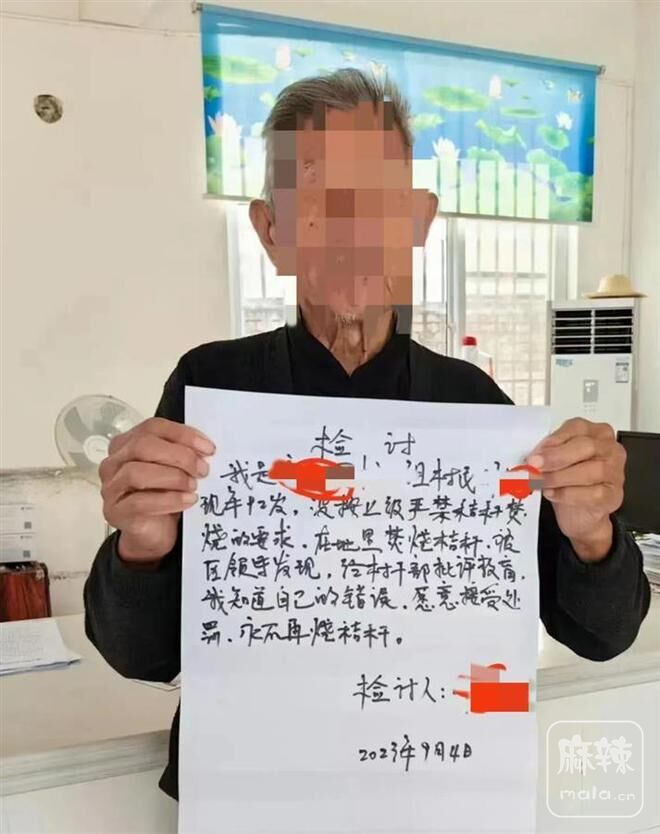 检讨
我是 组村民
现年92岁，没按上级严禁桔秆焚
烧的要求，在地里焚烧桔秆，被
区领导发现，经村干部批评教育，
我知道自己的错误，愿意接受处
罚，永不再烧桔秆。
检讨人：
2023年9月4日
麻辣
mala.cn